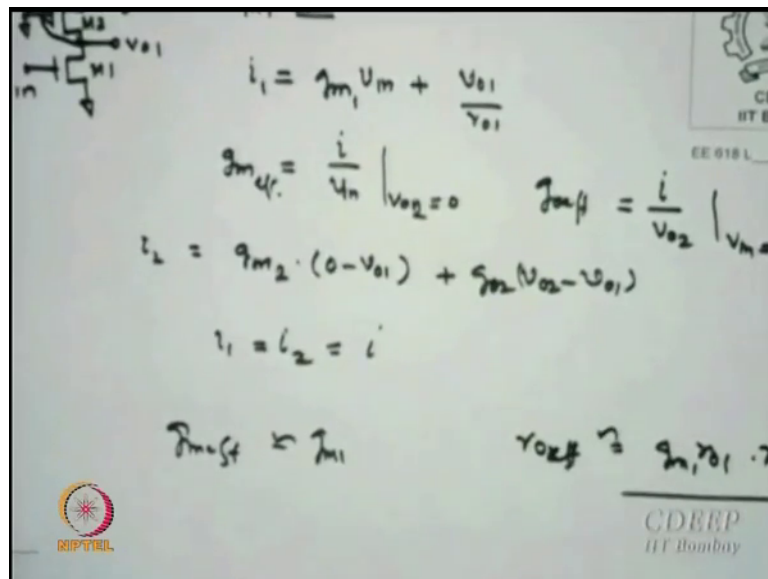 M2
V01
M1
in
i₁ = gm₁ Vin + V01 / r01
CD
IIT B
EE 618 L
gmeff. = i / Vin | V02 = 0
goeff = i / V02 | Vin =
i₂ = gm₂ · (0 - V01) + g02 (V02 - V01)
i₁ = i₂ = i
gmeff ≃ gm1
roeff ≃ gm₁ r01 ·
CDEEP
IIT Bombay
NPTEL